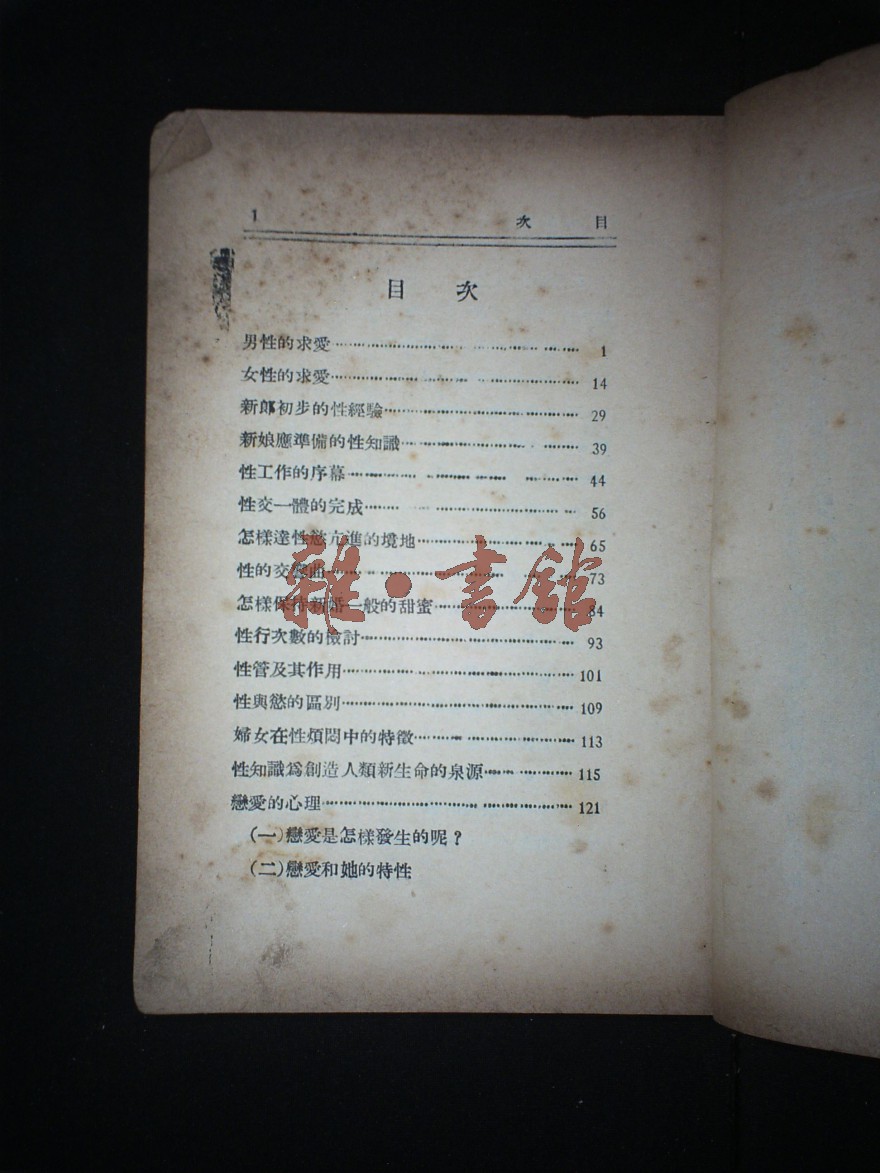 1 次 目
目 次
男性的求愛 1
女性的求愛 14
新郎初步的性經驗 29
新娘應準備的性知識 39
性工作的序幕 44
性交一體的完成 56
怎樣達性慾亢進的境地 65
性的交 曲 73
怎樣保持新婚一般的甜蜜 84
性行次數的檢討 93
性管及其作用 101
性與慾的區別 109
婦女在性煩悶中的特徵 113
性知識爲創造人類新生命的泉源 115
戀愛的心理 121
(一)戀愛是怎樣發生的呢？
(二)戀愛和她的特性
雜·書館